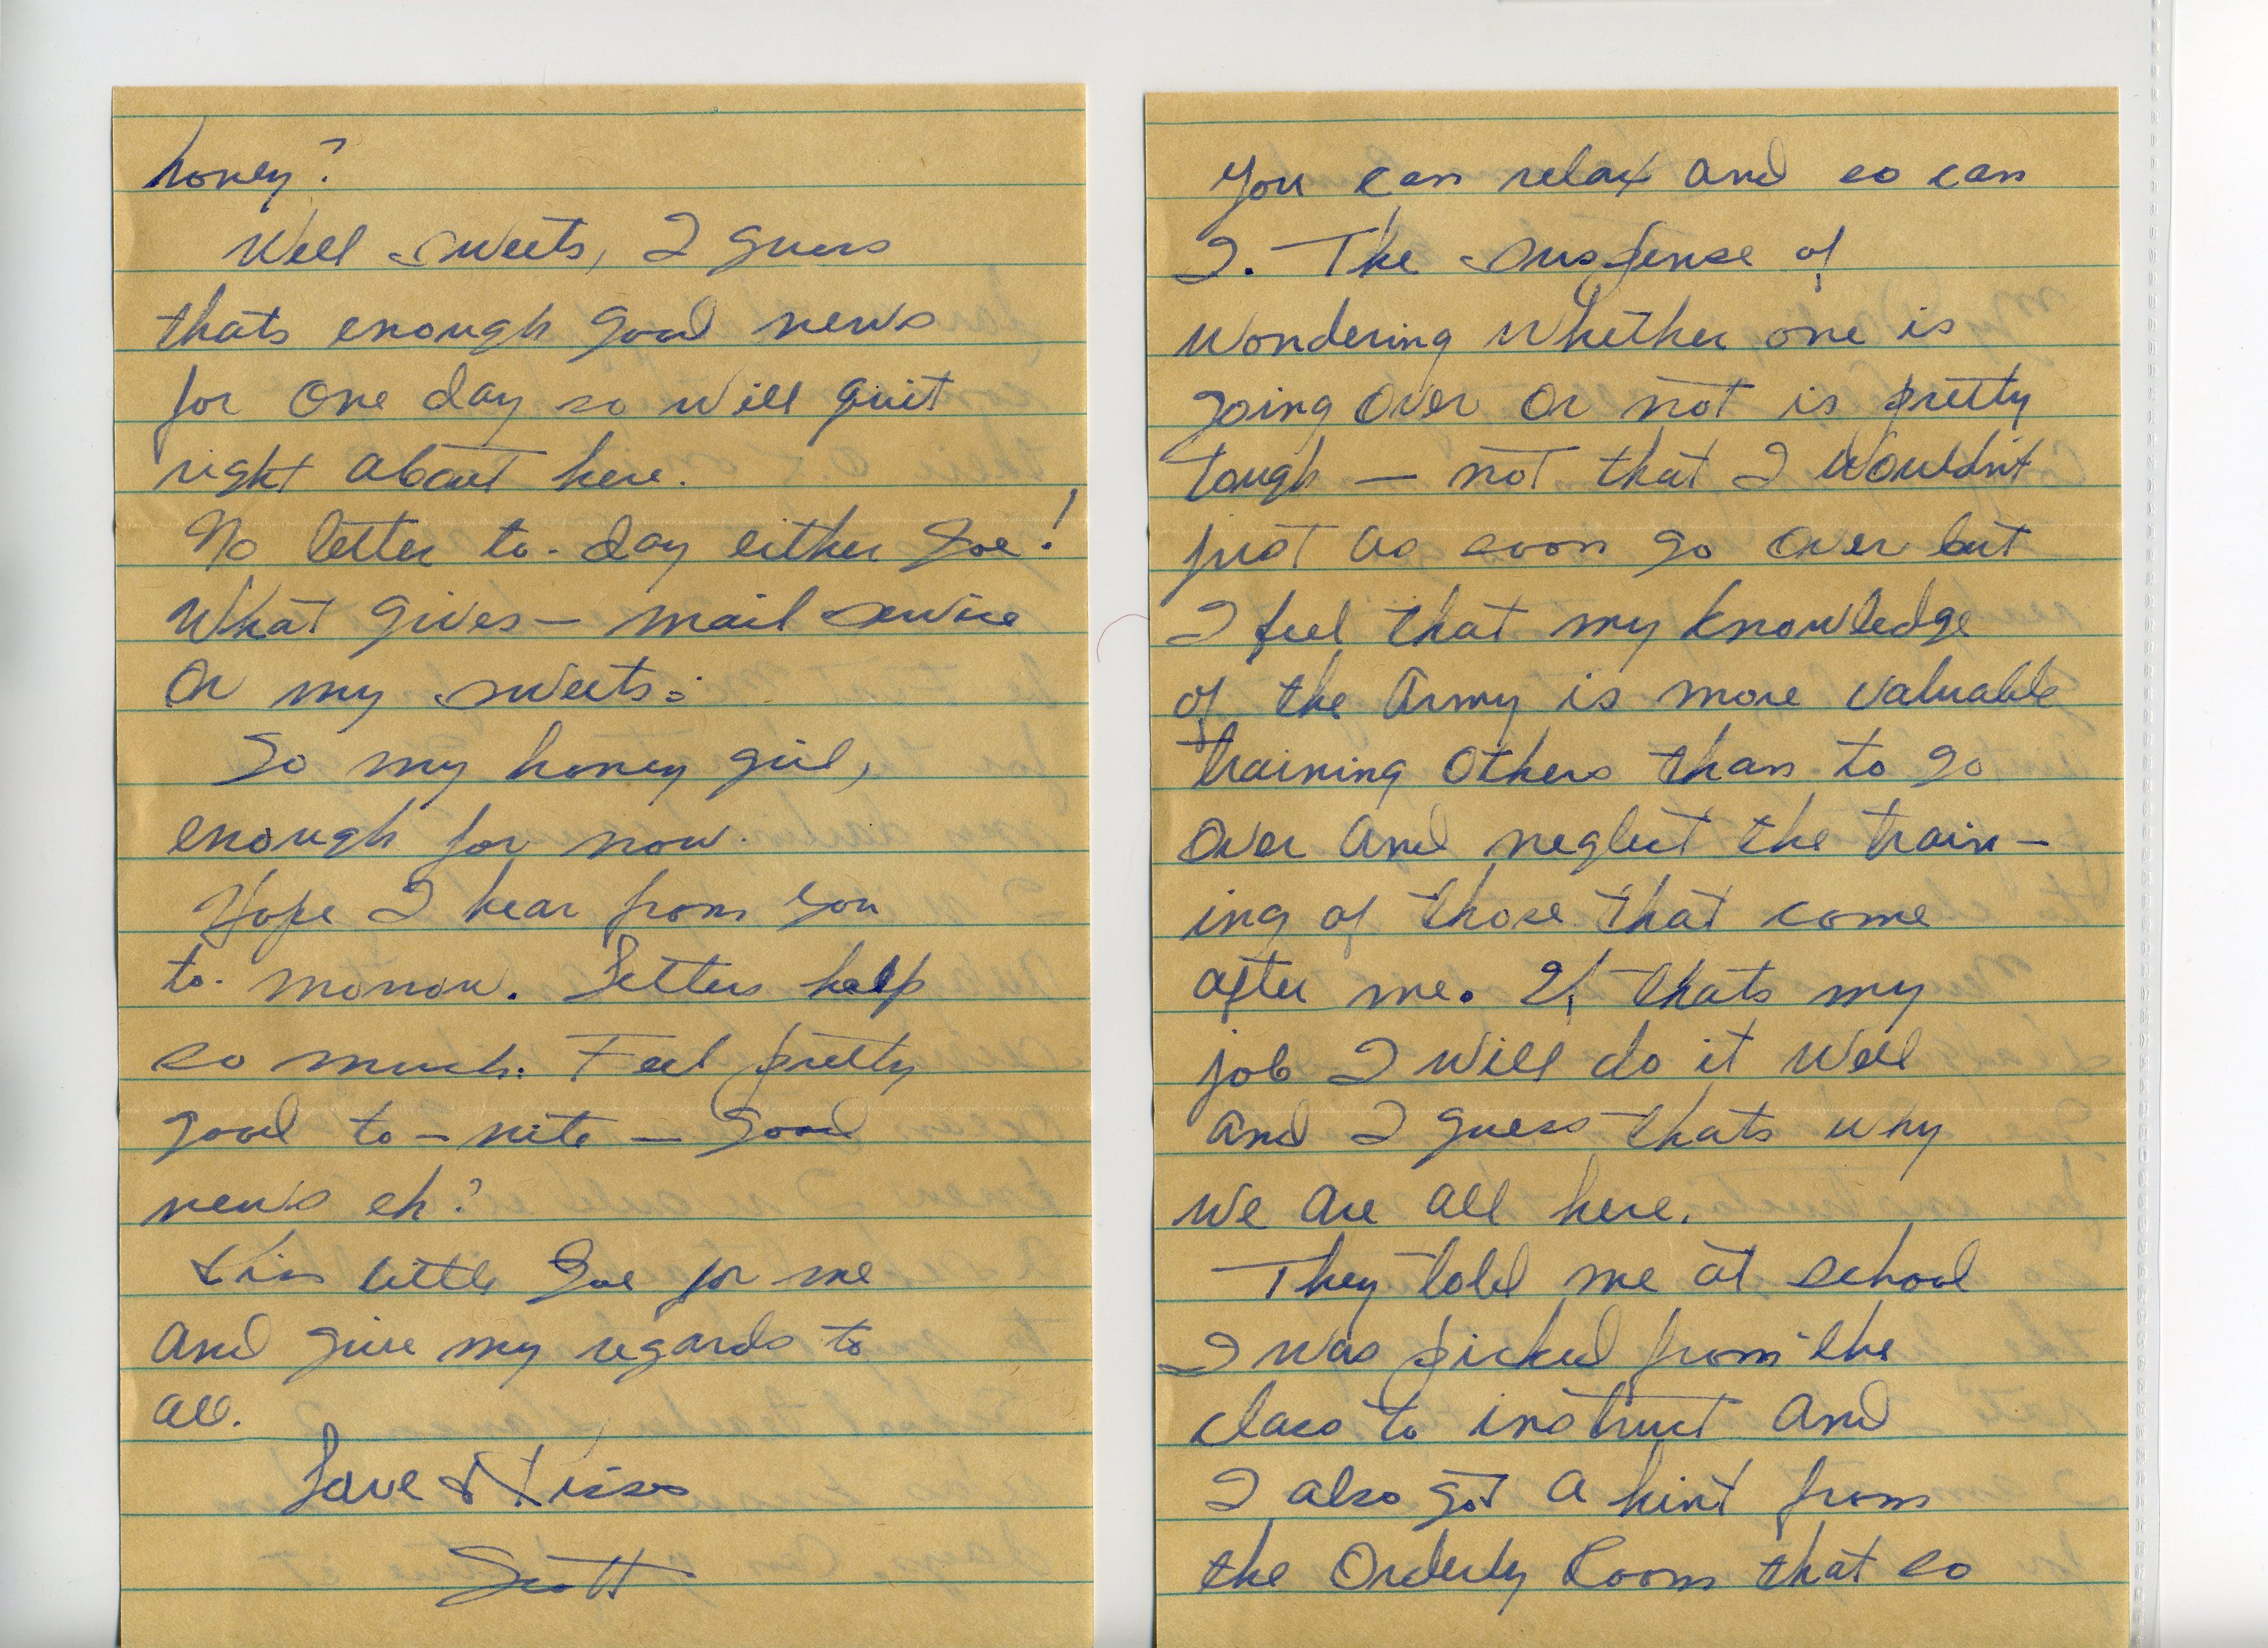 honey?
Well sweets, I guess
thats enough good news
for one day so will quit
right about here.
No letter to-day either Zoe!
What gives — mail service
or my sweets?
So my honey girl,
enough for now.
Hope I hear from you
to-morrow. Letters help
so much. Feel pretty
good to-nite — good
news eh?
Kiss little Zoe for me
and give my regards to
all.
Love & Kisses
Scott
you can relax and so can
I. The suspense of
wondering whether one is
going over or not is pretty
tough — not that I wouldn't
just as soon go over but
I feel that my knowledge
of the Army is more valuable
training others than to go
over and neglect the train-
ing of those that come
after me. If thats my
job I will do it well
and I guess thats why
we are all here.
They told me at school
I was picked from the
class to instruct and
I also got a hint from
the Orderly Room that so